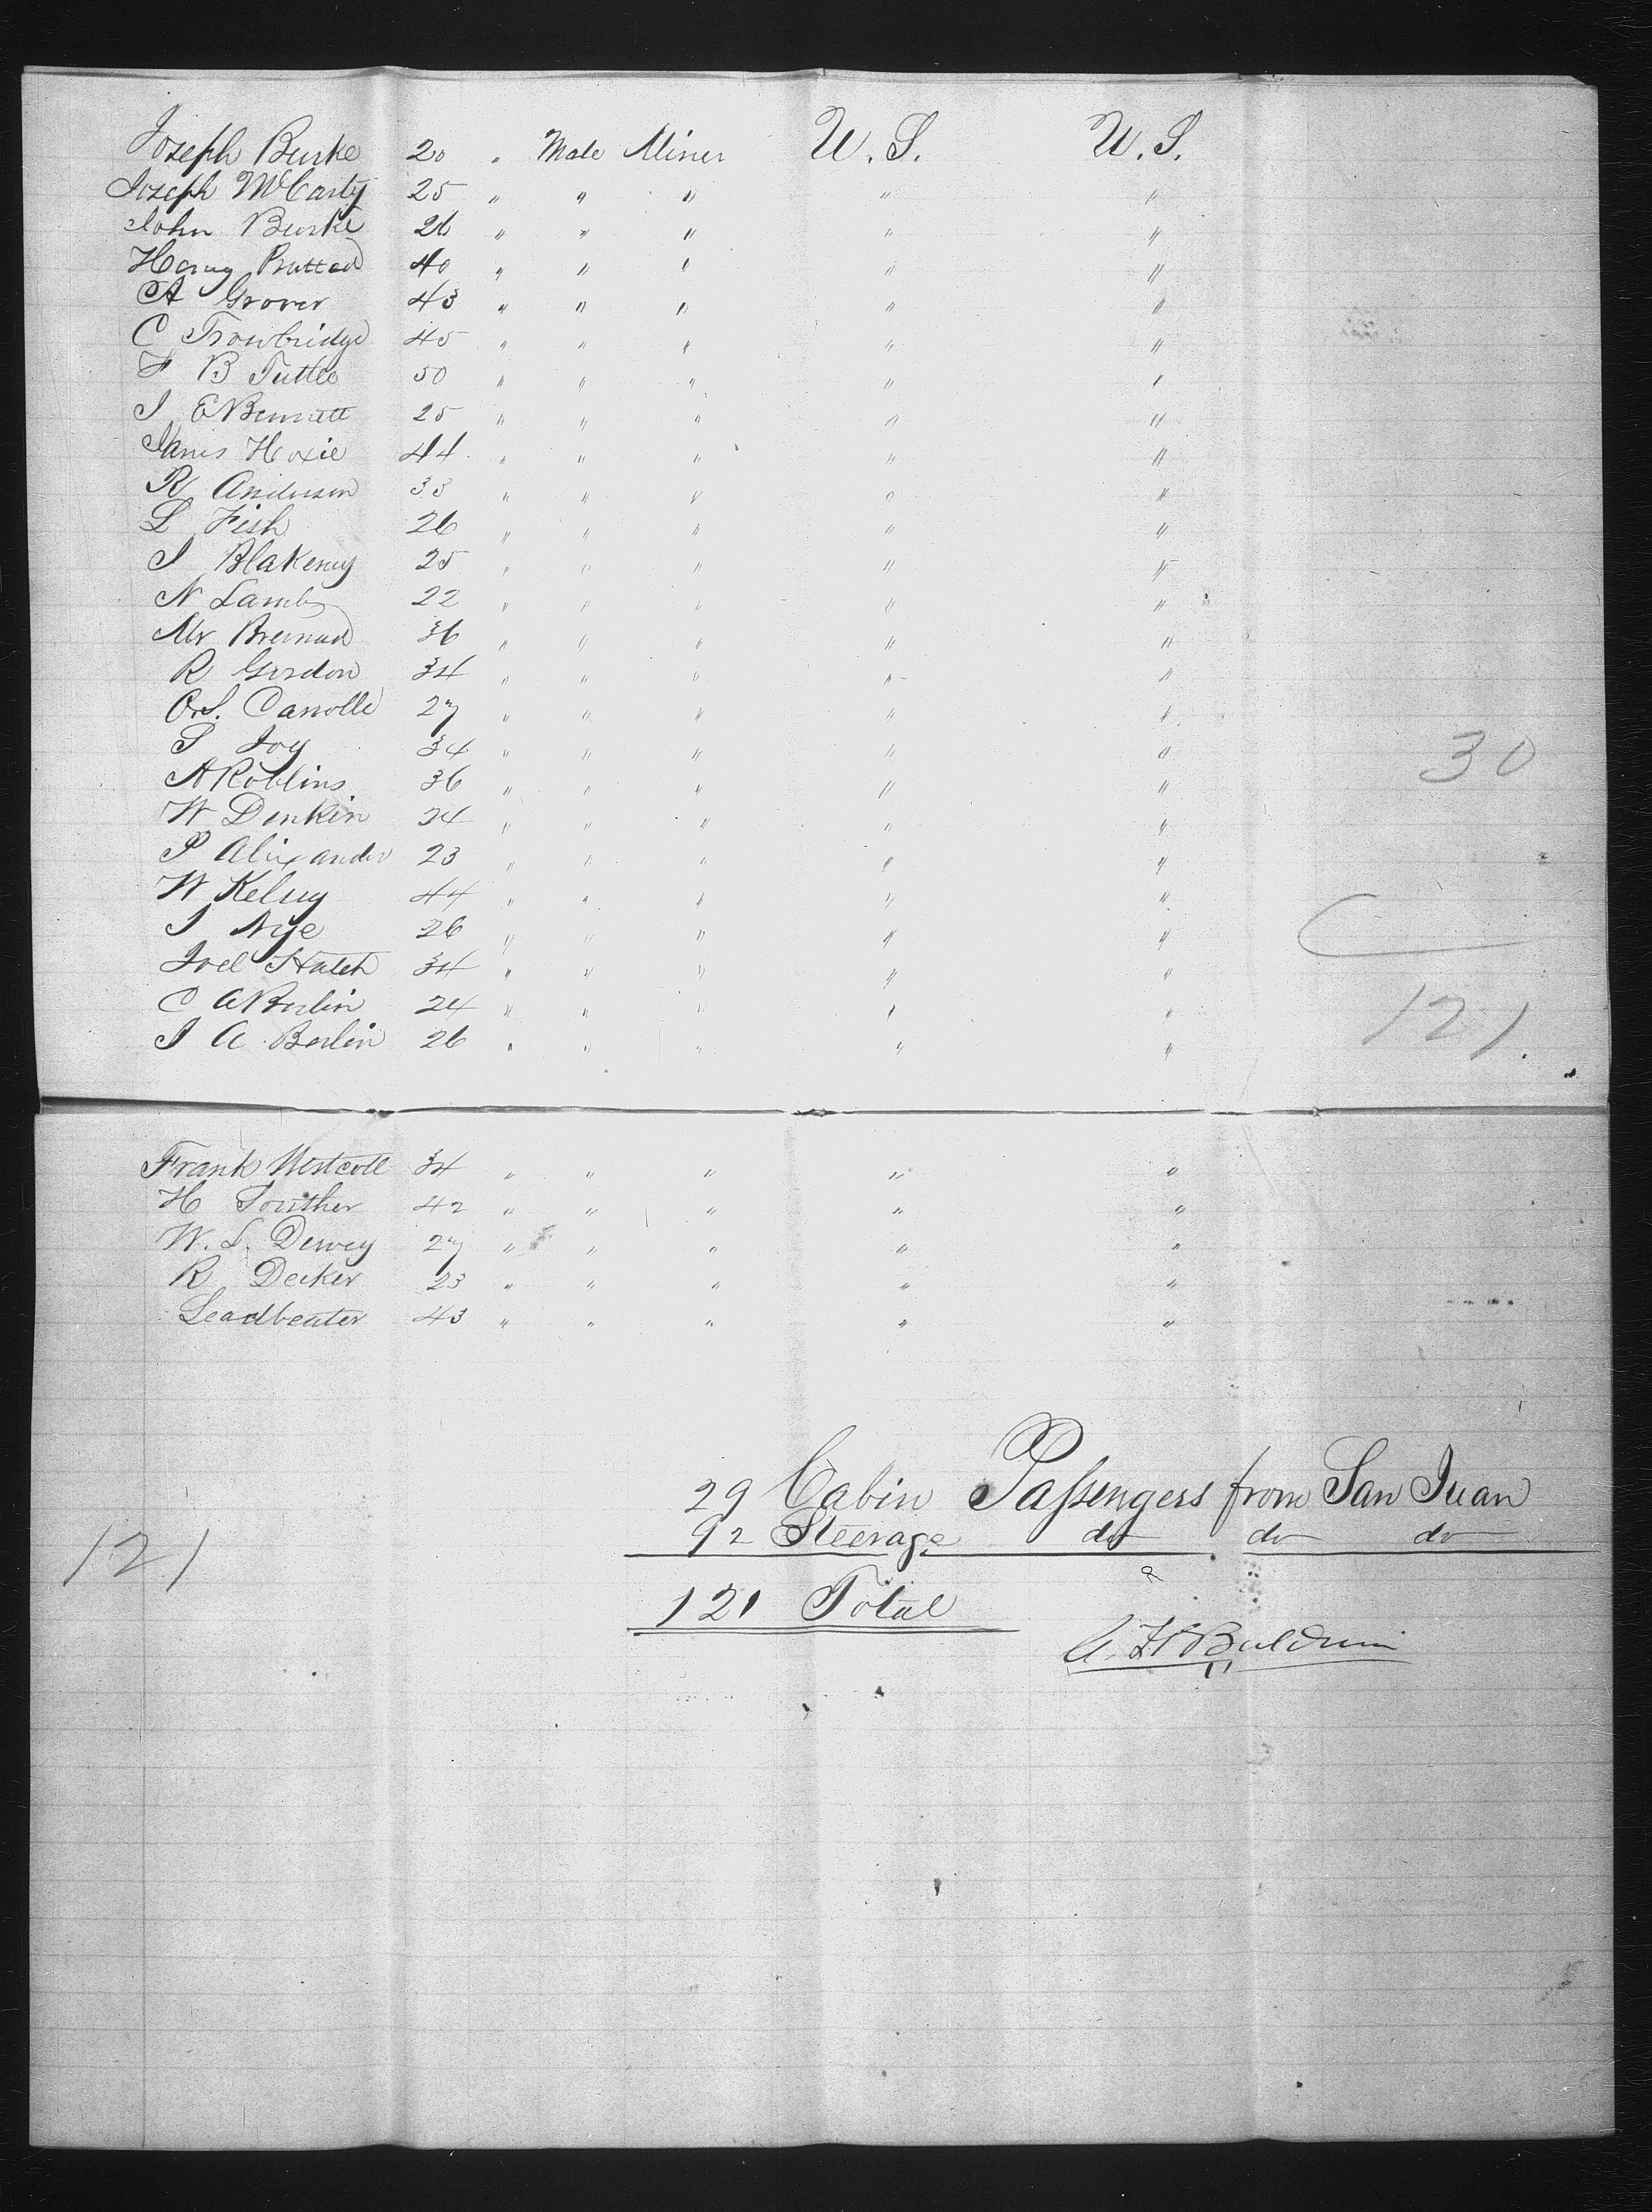 Joseph Burke 20 " Male Miner U.S. U.S.
Joseph McCarty 25 " " " " "
John Burke 26 " " " " "
Harvy 40 " " " " "
A Grover 43 " " " " "
C Trowbridge 45 " " " " "
F B Tuttle 50 " " " " "
J E Bennett 25 " " " " "
James Hoxie 44 " " " " "
R Anderson 33 " " " " "
L Fish 26 " " " " "
J Blakeney 25 " " " " "
N Lamb 22 " " " " "
Mr 36 " " " " "
R Gordon 34 " " " " "
Carrolle 27 " " " " "
S Joy 34 " " " " "
30
A Robbins 36 " " " " "
W Denkin 24 " " " " "
P Alixander 23 " " " " "
W Kelsey 44 " " " " "
J Nye 26 " " " " "
Joel Hatch 34 " " " " "
C A Berlin 24 " " " " "
121.
J A Berlin 26 " " " " "
Frank Westcott 34 " " " " "
H Souther 42 " " " " "
W. S. Dewey 27 " " " " "
R Decker 23 " " " " "
Leadbeater 43 " " " " "
29 Cabin Passengers from San Juan
92 Steerage do do do
121
121 Total
A. H. Baldwin